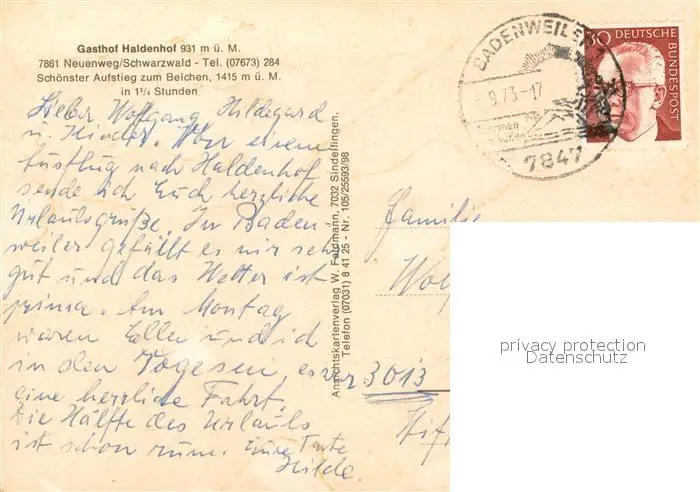 Gasthof Haldenhof 931 m ü. M.
7861 Neuenweg/Schwarzwald - Tel. (07673) 284
Schönster Aufstieg zum Belchen, 1415 m ü. M.
in 1¼ Stunden
Lieber Wolfgang Hildegard
u. Kinder. Von einem
Ausflug nach Haldenhof
sende ich Euch herzliche
Urlaubsgrüße. In Baden-
weiler gefällt es mir sehr
gut und das Wetter ist
prima. Am Montag
waren Elli und ich
in den Vogesen, es war
eine herrliche Fahrt.
Die Hälfte des Urlaubs
ist schon rum. Eure Tante
Hilde.
Ansichtskartenverlag W. Feldmann, 7032 Sindelfingen,
Telefon (07031) 8 41 25 - Nr. 105/25593/98
BADENWEILER
9.73-17
7847
30 DEUTSCHE
BUNDESPOST
Familie
3013
privacy protection
Datenschutz